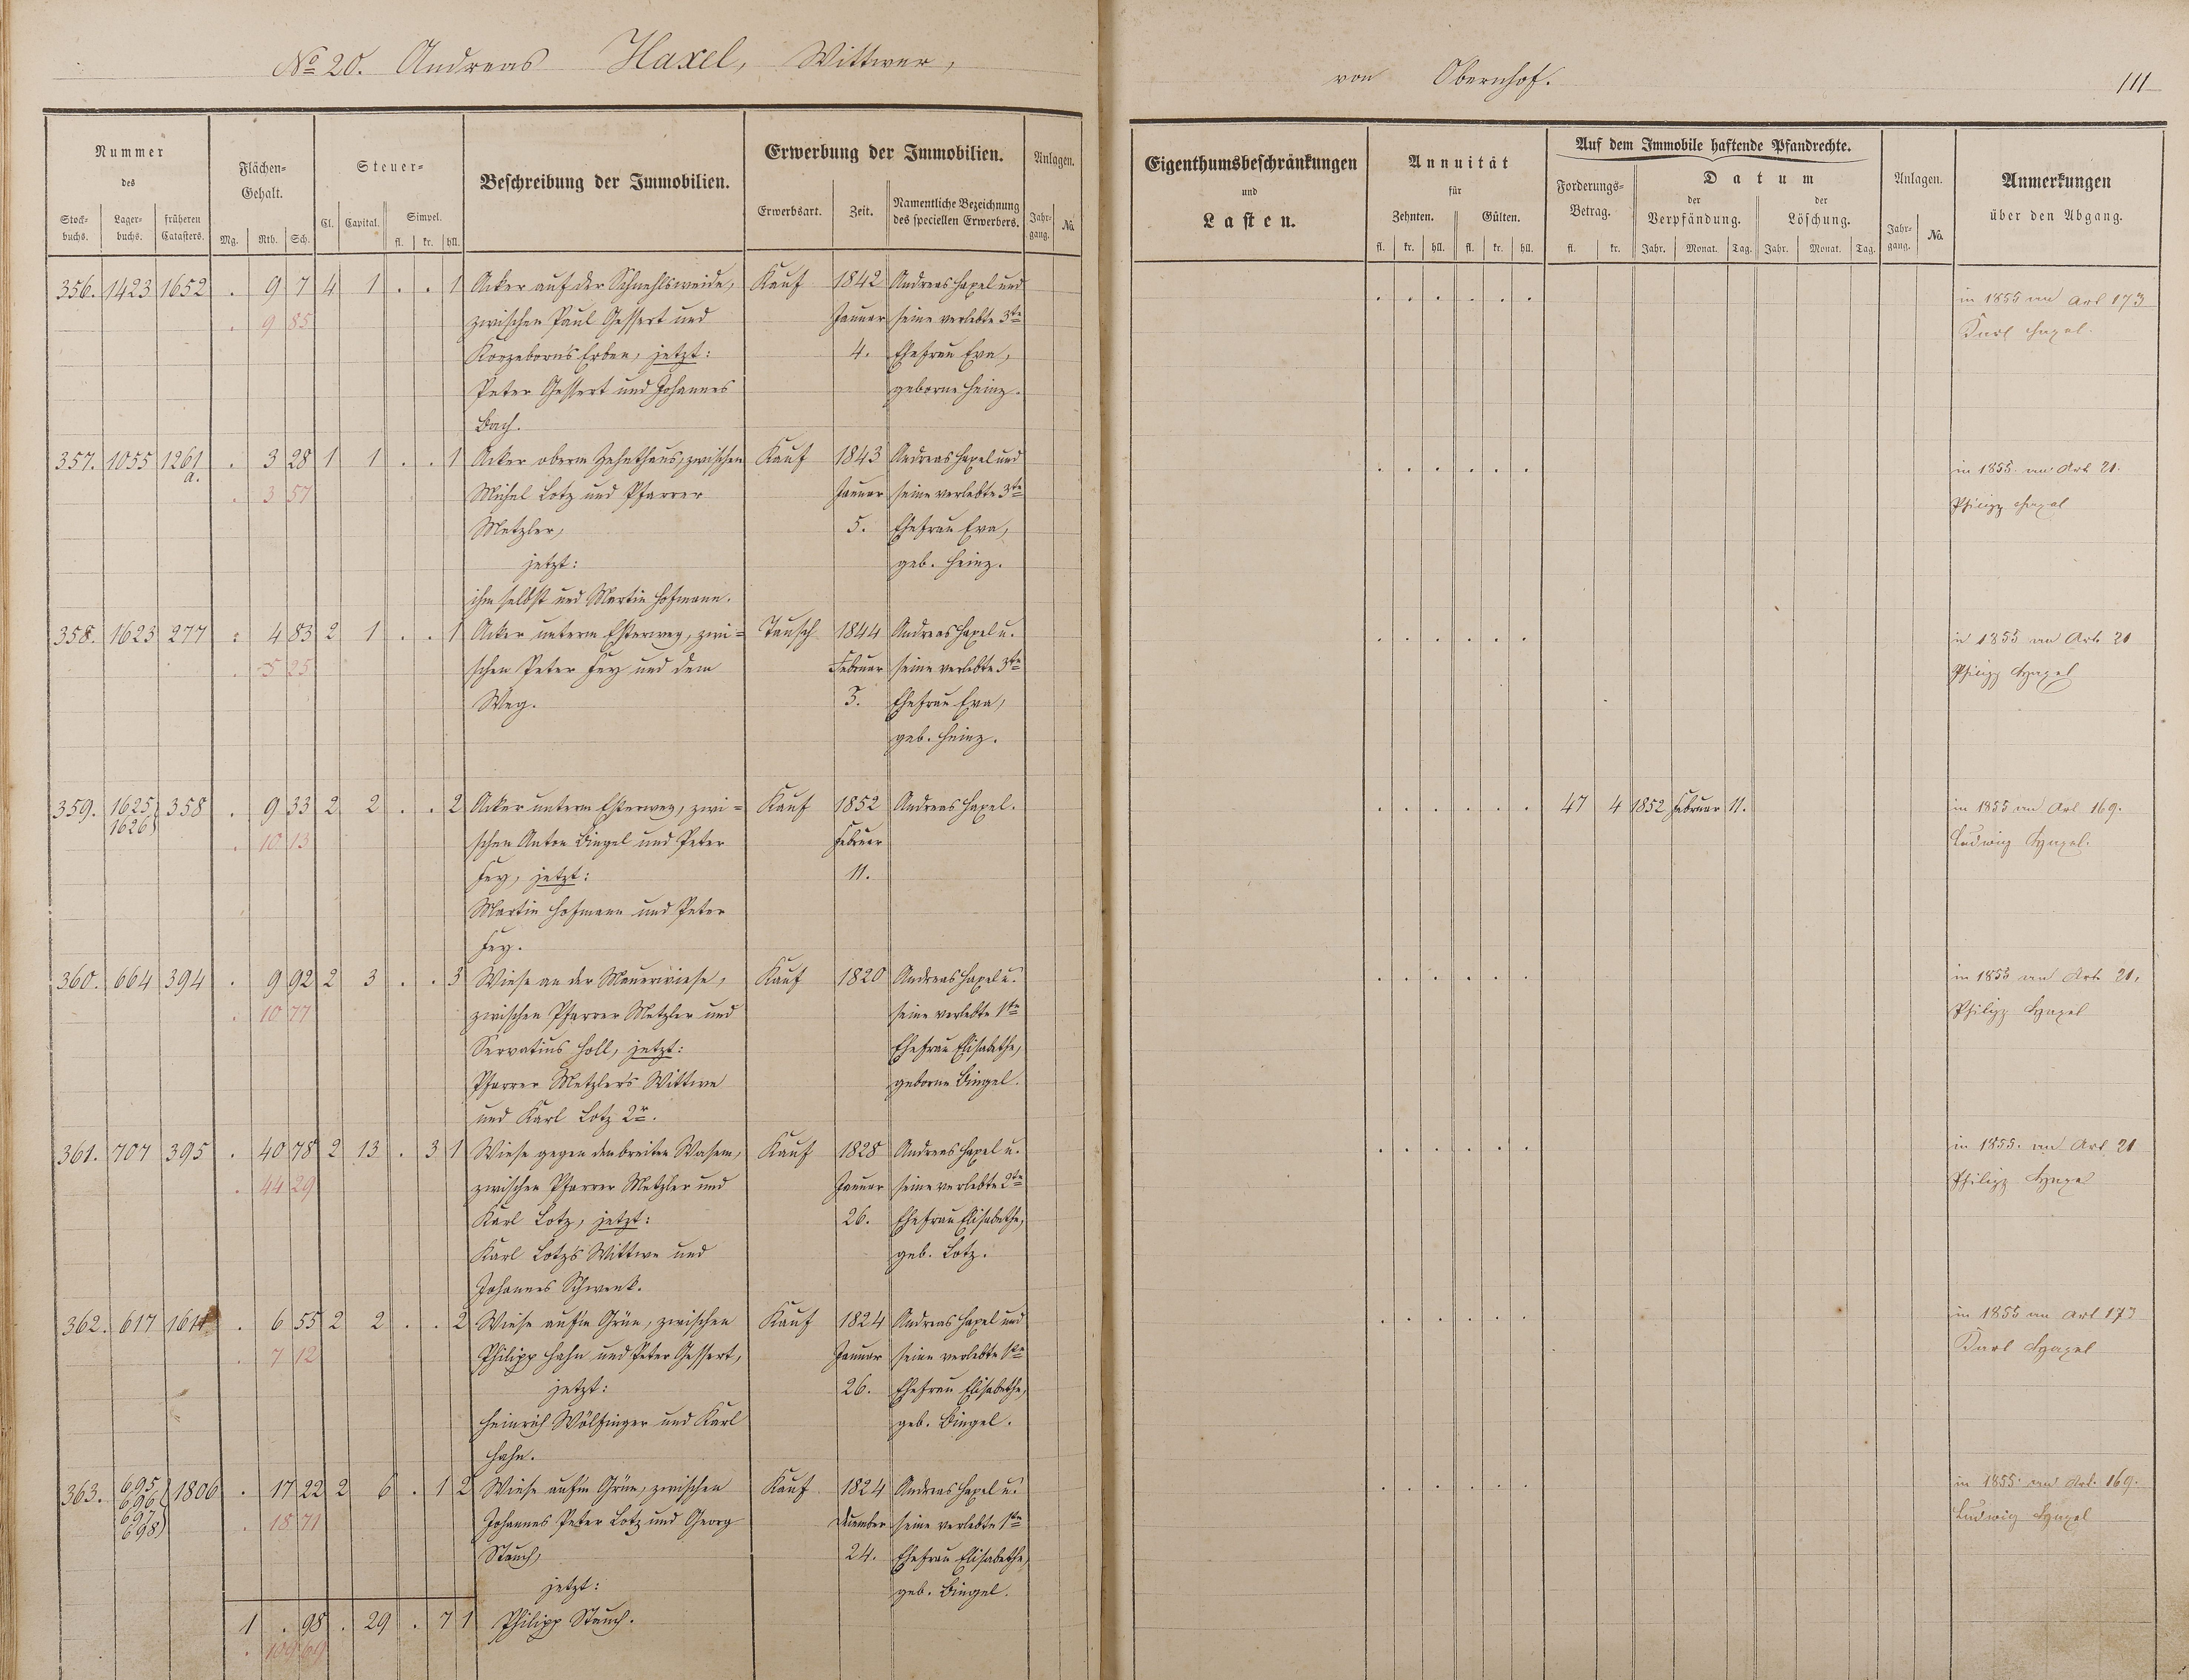 No 20. Andreas Haxel, Wittwer,
von Obernhof.
111
Nummer
des
Stockbuchs.
Lagerbuchs.
früheren Catasters.
Flächen-
Gehalt.
Mg. Rth. Sch.
Steuer-
Cl. Capital. Simpel.
fl. kr. hll.
Beschreibung der Immobilien.
Erwerbung der Immobilien.
Erwerbsart. Zeit. Namentliche Bezeichnung
des speciellen Erwerbers.
Anlagen.
Jahr-
gang. No
Eigenthumsbeschränkungen
und
Lasten.
Annuität
für
Zehnten. Gülten.
fl. kr. hll. fl. kr. hll.
Auf dem Immobile haftende Pfandrechte.
Forderungs-
Betrag.
fl. kr.
Datum
der Verpfändung. der Löschung.
Jahr. Monat. Tag. Jahr. Monat. Tag.
Anlagen.
Jahr-
gang. No
Anmerkungen
über den Abgang.
356. 1423 1652 . 9 7 4 1 . . 1 Acker auf der Schnehlsweide, Kauf 1842 Andreas Haxel und . . . . . . in 1855 an Art 173
. 9 85 zwischen Paul Gessert und Januar seine verlebte 3te Karl Haxel.
Korzeborns Erben, jetzt: 4. Ehefrau Eva,
Peter Gessert und Johannes geborne Heinz.
Bach.
357. 1055 1261 a. . 3 28 1 1 . . 1 Acker oberm Zehnthaus, zwischen Kauf 1843 Andreas Haxel und . . . . . . in 1855 an Art 21.
. 3 57 Michel Lotz und Pfarrer Januar seine verlebte 3te Philipp Haxel
Metzler, 5. Ehefrau Eva,
jetzt: geb. Heinz.
ihm selbst und Martin Hofmann.
358. 1623 277 . 4 83 2 1 . . 1 Acker unterm Esterweg, zwi= Tausch 1844 Andreas Haxel u. . . . . . . in 1855 an Art 21
. 5 25 schen Peter Fey und dem Februar seine verlebte 3te Philipp Haxel
Weg. 3. Ehefrau Eva,
geb. Heinz.
359. 1625 1626 358 . 9 33 2 2 . . 2 Acker unterm Esterweg, zwi= Kauf 1852 Andreas Haxel. . . . . . . 47 4 1852 Februar 11. in 1855 an Art 169.
. 10 13 schen Anton Bingel und Peter Februar Ludwig Haxel.
Fey, jetzt: 11.
Martin Hofmann und Peter
Fey.
360. 664 394 . 9 92 2 3 . . 3 Wiese an der Mauerwiese, Kauf 1820 Andreas Haxel u. . . . . . . in 1855 an Art 21,
. 10 77 zwischen Pfarrer Metzler und seine verlebte 1te Philipp Haxel
Servatius Holl, jetzt: Ehefrau Elisabethe,
Pfarrer Metzlers Wittwe geborne Bingel.
und Karl Lotz 2r.
361. 707 395 . 40 78 2 13 . 3 1 Wiese gegen den breiten Wasem, Kauf 1828 Andreas Haxel u. . . . . . . in 1855. an Art 21
. 44 29 zwischen Pfarrer Metzler und Januar seine verlebte 2te Philipp Haxel
Karl Lotz, jetzt: 26. Ehefrau Elisabethe,
Karl Lotz's Wittwe und geb. Lotz.
Johannes Schwenk.
362. 617 1614 . 6 55 2 2 . . 2 Wiese auf'm Grün, zwischen Kauf 1824 Andreas Haxel und . . . . . . in 1855 an Art 173
. 7 12 Philipp Hahn und Peter Gessert, Januar seine verlebte 1te Karl Haxel
jetzt: 26. Ehefrau Elisabethe,
Heinrich Wölfinger und Karl geb. Bingel.
Hahn.
363. 695 696 697 698 1806 . 17 22 2 6 . 1 2 Wiese auf'm Grün, zwischen Kauf 1824 Andreas Haxel u. . . . . . . in 1855 an Art. 169.
. 18 71 Johannes Peter Lotz und Georg December seine verlebte 1te Ludwig Haxel
Stauch, 24. Ehefrau Elisabethe,
jetzt: geb. Bingel.
1 . 98 . 29 . 7 1 Philipp Stauch.
. 109 69